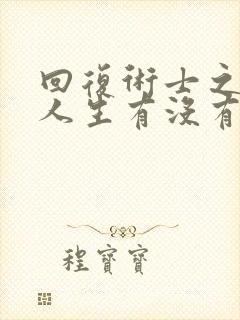 回復術士之
人生有沒有
程寶寶